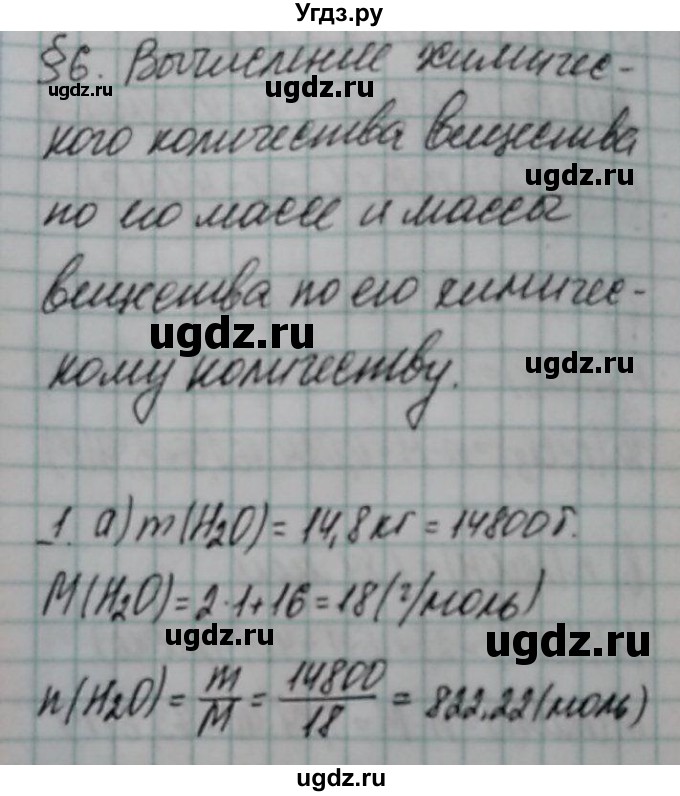 Угдз.ру
§6. Вычисление химичес-
ugdz.ru ugdz.ru
кого количества вещества
ugdz.ru
по его массе и массы
вещества по его химичес-
ugdz.ru ugdz.ru
кому количеству.
1. а) m(H₂O) = 14,8 кг = 14800 г.
M(H₂O) = 2·1+16 = 18 (г/моль)
ugdz.ru ugdz.ru
n(H₂O) = m/M = 14800/18 = 822,22 (моль)
ugdz.ru